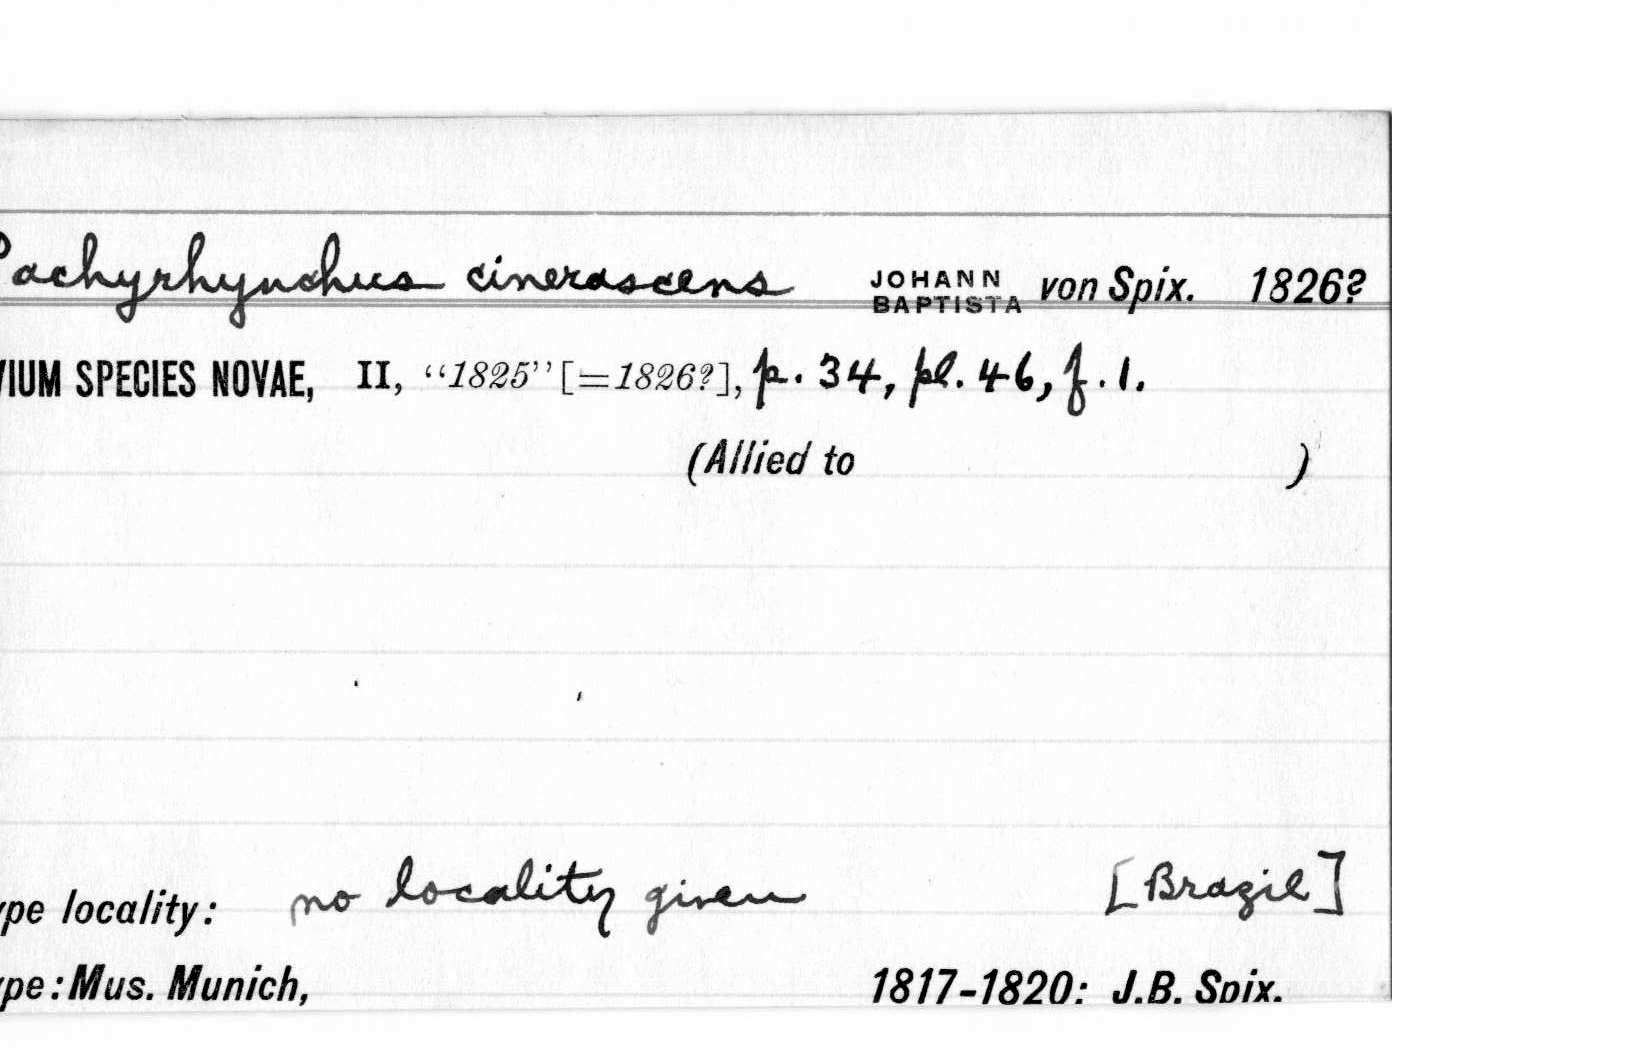 Pachyrhynchus cinerascens JOHANN BAPTISTA von Spix. 1826?
VIUM SPECIES NOVAE, II, “1825” [=1826?], p. 34, pl. 46, f. 1.
(Allied to )
ype locality: no locality given [Brazil]
ype: Mus. Munich, 1817-1820: J.B. Spix.